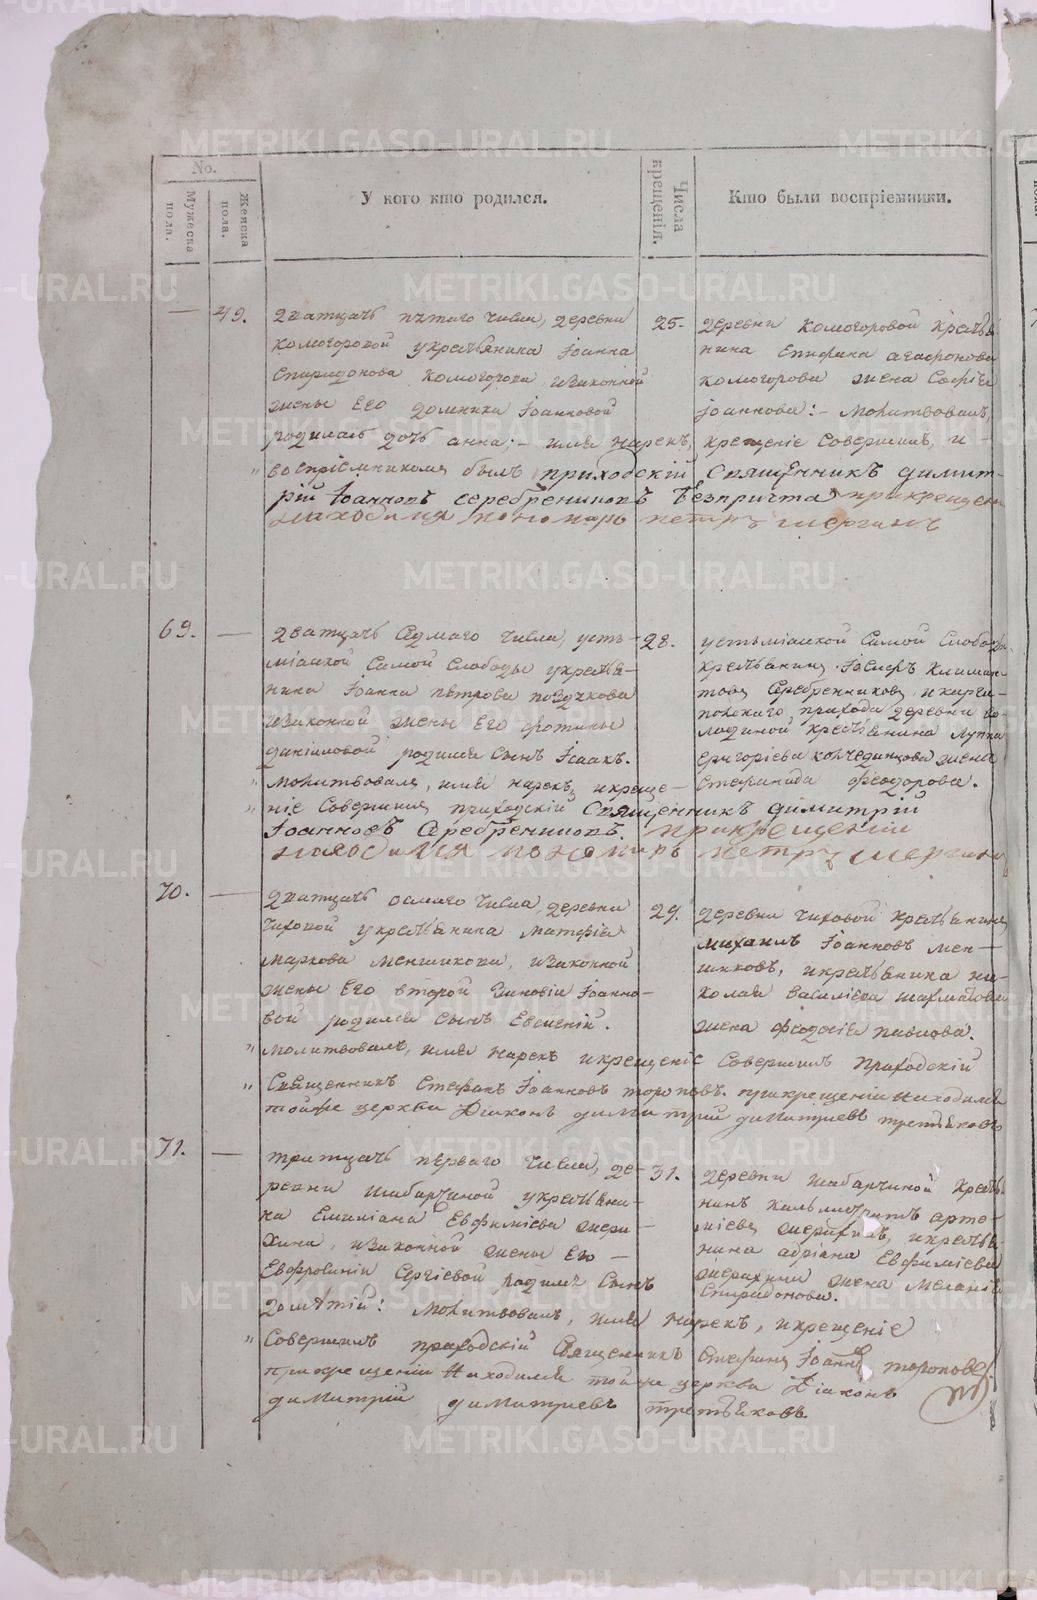 No.
Мужеска пола.
Женска пола.
У кого кто родился.
Числа крещенія.
Кто были воспріемники.
49.
Дватцать пятаго числа, деревни
Комогоровой укрестьянина Іоанна
Спиридонова Комогорова изаконной
жены Его домники Іоанновой
родилась дочь анна; – имя нарекъ,
воспріемникомъ былъ приходскій Священникъ димит-
рій Іоанновъ серебренниковъ безпричта прикрещени
находился пономарь петръ
25.
деревни Комогоровой Крестья
нина Епифана агафонова
комогорова жена Софія
іоаннова: – молитвовалъ,
крещеніе Совершилъ, и –
69.
дватцать Седмаго числа, усть-
міаской Самой Слободы укрестья-
нина Іоанна петрова
изаконной жены Его фотины
даніиловой родился Сынъ Ісаакъ.
молитвовалъ, имя нарекъ, икреще-
ніе Совершилъ приходскій Священникъ димитрій
Іоанновъ Серебренниковъ. прикрещеніи
находился пономарь петръ
28.
устьміаской Самой Слободы
крестьянинъ Іосифъ Климан-
товъ Серебренниковъ, икарга-
польскаго прихода деревни
крестьянина Луппа
григоріева колчеданцова жена
Стефанида феодорова.
70.
дватцать осмаго числа, деревни
Чирковой укрестьянина матфія
маркова меншикова, изаконной
жены Его второй Зиновіи Іоанно-
вой родился Сынъ Евгеній.
молитвовалъ, имя нарекъ икрещеніе Совершилъ приходскій
Священникъ Стефанъ Іоанновъ топоровъ. прикрещеніи находился
тойже церкви Діаконъ димитрій димитріевъ третьяковъ
29.
деревни Крестьянинъ
михаилъ Іоанновъ мен-
шиковъ, икрестьянина ни-
колая василіева
жена феодосія павлова.
71.
тритцать перваго числа, де-
ревни шабарчиной укрестьяни-
на Емиліана Евфиміева
изаконной жены Его –
Евфросиніи Сергіевой родился Сынъ
дометій: молитвовалъ, имя нарекъ, икрещеніе
Совершилъ приходскій Священникъ Стефанъ Іоанновъ топоровъ.
прикрещеніи находился тойже церкви Діаконъ
димитрій димитріевъ третьяковъ.
31.
деревни шабарчиной крестья-
нинъ арте-
міевъ икрестья
нина адріана Евфиміева
жена меланія
Спиридонова.
METRIKI.GASO-URAL.RU